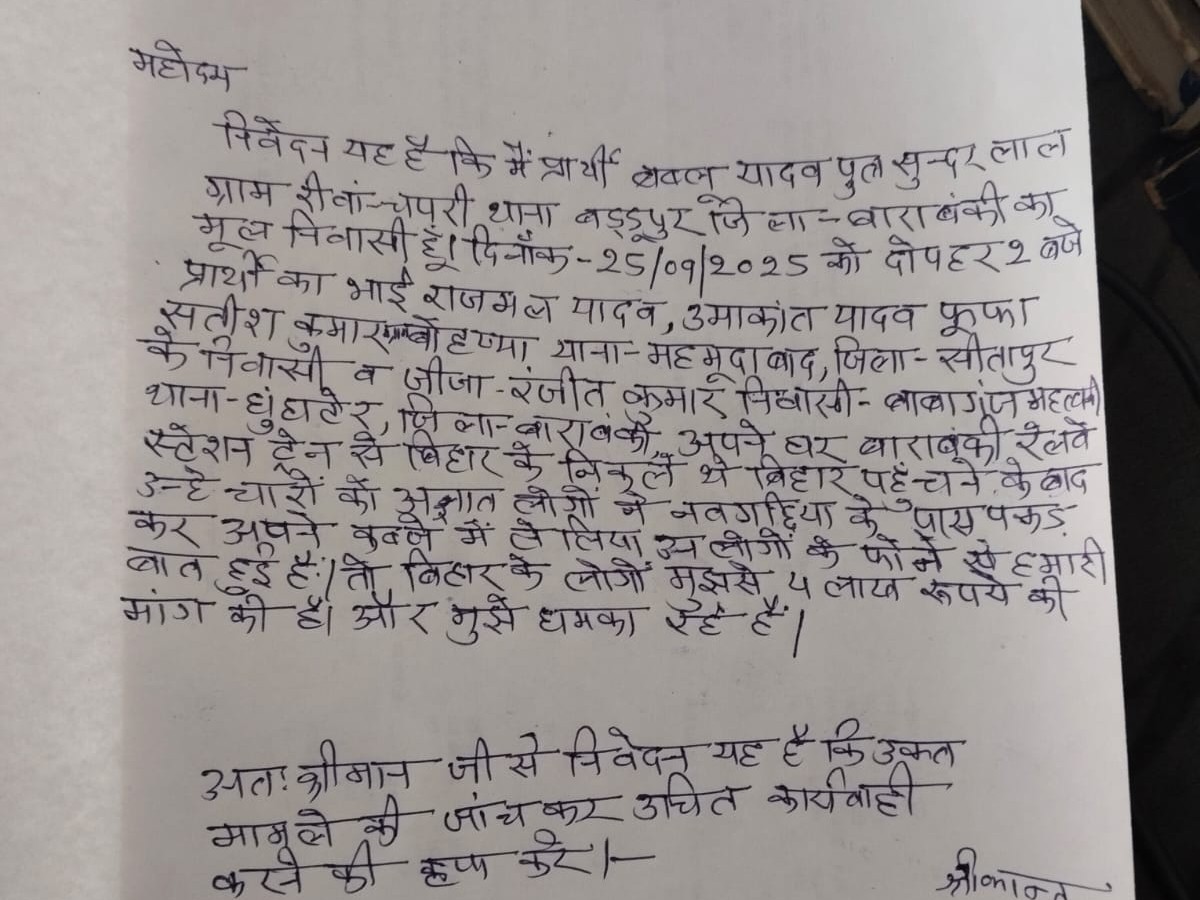 महोदय
निवेदन यह है कि मैं प्रार्थी बबलू यादव पुत्र सुन्दर लाल
ग्राम रीवां-चपरी थाना बड्डूपुर जिला-बाराबंकी का
मूल निवासी हूँ। दिनाँक-25/09/2025 को दोपहर 2 बजे
प्रार्थी का भाई राजमल यादव, उमाकांत यादव फूफा
सतीश कुमार थाना-महमूदाबाद, जिला-सीतापुर
के निवासी व जीजा-रंजीत कुमार निवासी-बाबागंज
थाना-घुंघटेर, जिला-बाराबंकी, अपने घर बाराबंकी रेलवे
स्टेशन ट्रेन से बिहार के निकले थे बिहार पहुँचने के बाद
उन्हे चारों को अज्ञात लोगों ने नवगछिया के पास पकड़
कर अपने कब्जे में ले लिया उन लोगों के फोन से हमारी
बात हुई है। तो बिहार के लोगों मुझसे 4 लाख रूपये की
मांग की है। और मुझे धमका रहे हैं।
अतः श्रीमान जी से निवेदन यह है कि उक्त
मामले की जांच कर उचित कार्यवाही
करने की कृपा करे।-
श्रीकान्त